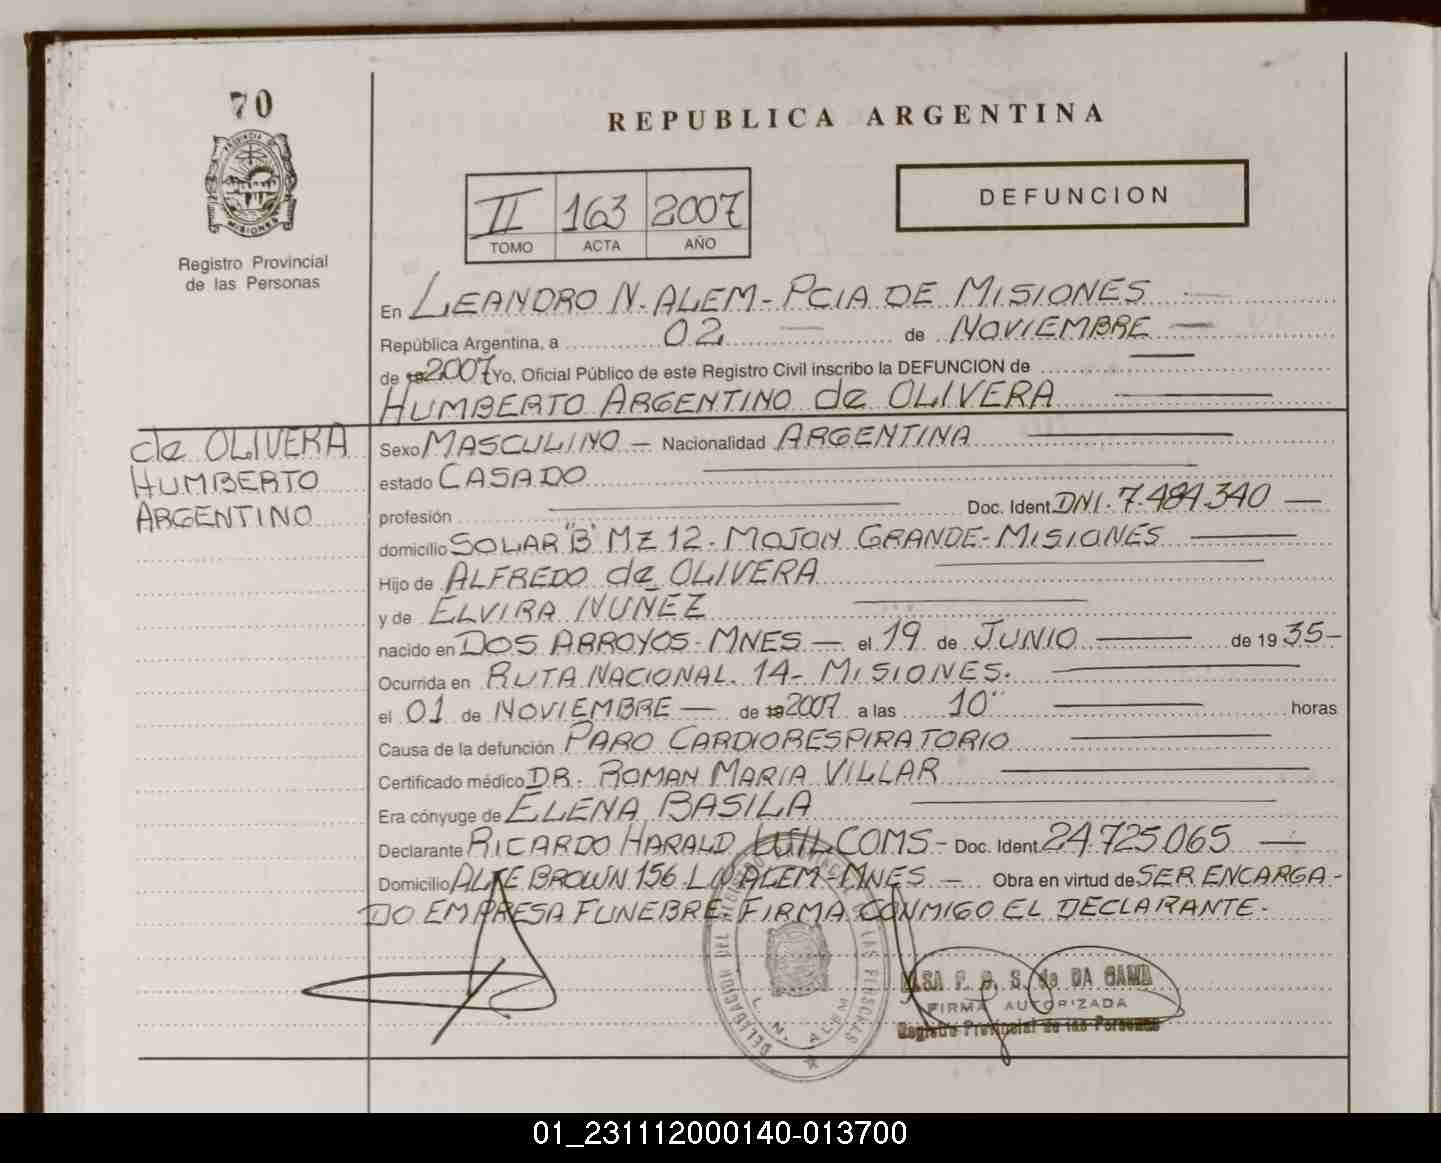 70
PROVINCIA
MISIONES
Registro Provincial
de las Personas
REPUBLICA ARGENTINA
II 163 2007
TOMO ACTA AÑO
DEFUNCION
En LEANDRO N. ALEM - PCIA DE MISIONES
República Argentina, a 02 de NOVIEMBRE
de 2007 Yo, Oficial Público de este Registro Civil inscribo la DEFUNCION de
HUMBERTO ARGENTINO de OLIVERA
de OLIVERA
HUMBERTO
ARGENTINO
Sexo MASCULINO - Nacionalidad ARGENTINA
estado CASADO
profesión Doc. Ident. DNI. 7.484.340
domicilio SOLAR "B" MZ 12 - MOJON GRANDE - MISIONES
Hijo de ALFREDO de OLIVERA
y de ELVIRA NUÑEZ
nacido en DOS ARROYOS - MNES - el 19 de JUNIO de 1935-
Ocurrida en RUTA NACIONAL. 14 - MISIONES.
el 01 de NOVIEMBRE - de 2007 a las 10" horas
Causa de la defunción PARO CARDIORESPIRATORIO
Certificado médico DR. ROMAN MARIA VILLAR
Era cónyuge de ELENA BASILA
Declarante RICARDO HARALD WILCOMS - Doc. Ident. 24.725.065
Domicilio ALTE BROWN 156 L N ALEM - MNES - Obra en virtud de SER ENCARGA-
DO EMPRESA FUNEBRE. FIRMA CONMIGO EL DECLARANTE.
DELEGACION DEL REGISTRO PROVINCIAL DE LAS PERSONAS
L. N. ALEM
S. de DA GAMA
FIRMA AUTORIZADA
Registro Provincial de las Personas
01_231112000140-013700